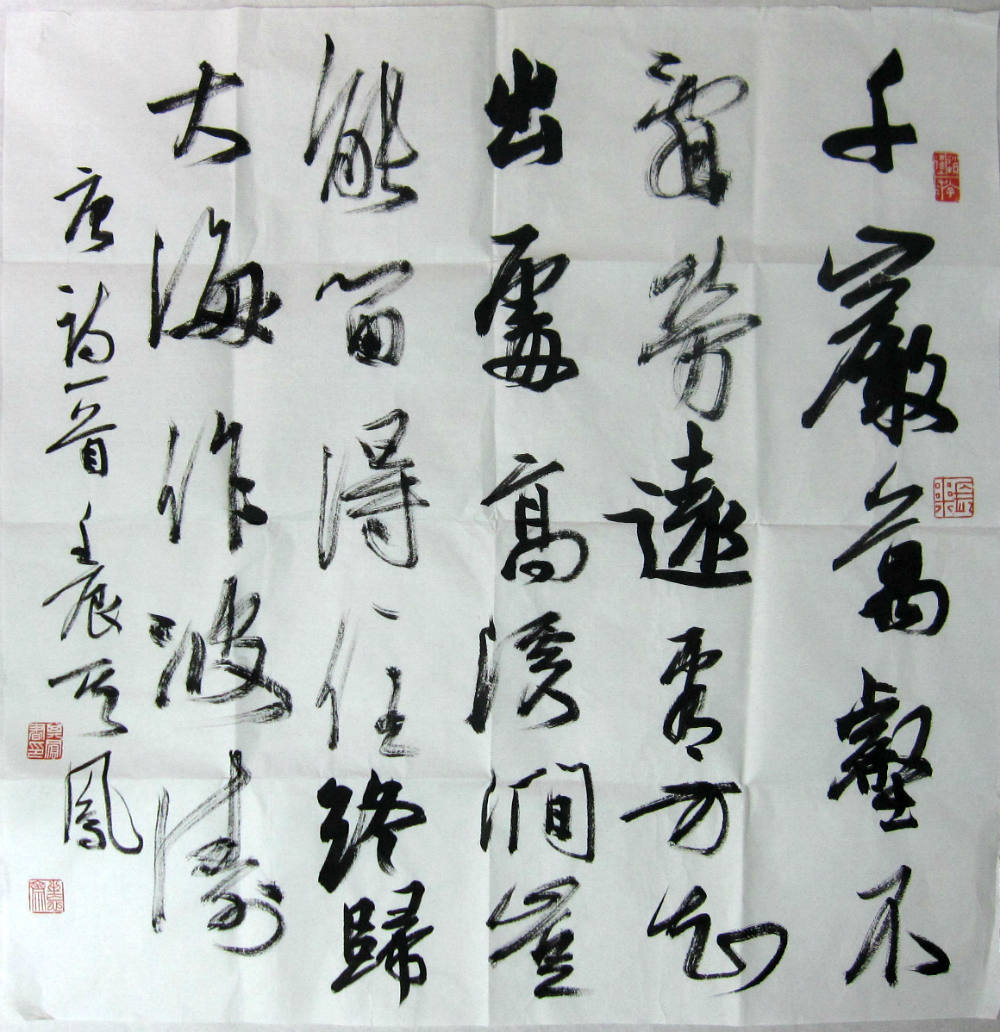 千巖萬壑不
辭勞遠看方知
出處高溪澗豈
能留得住終歸
大海作波濤
唐詩一首壬辰鳳